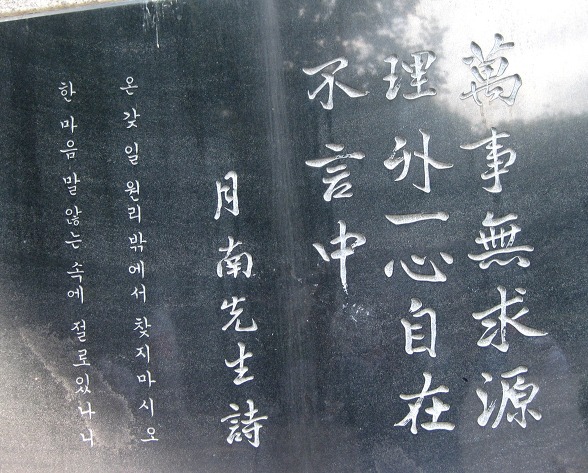 萬事無求源
理外一心自在
不言中
月南先生詩
온갖 일 원리 밖에서 찾지마시오
한 마음 말 않는 속에 절로있나니